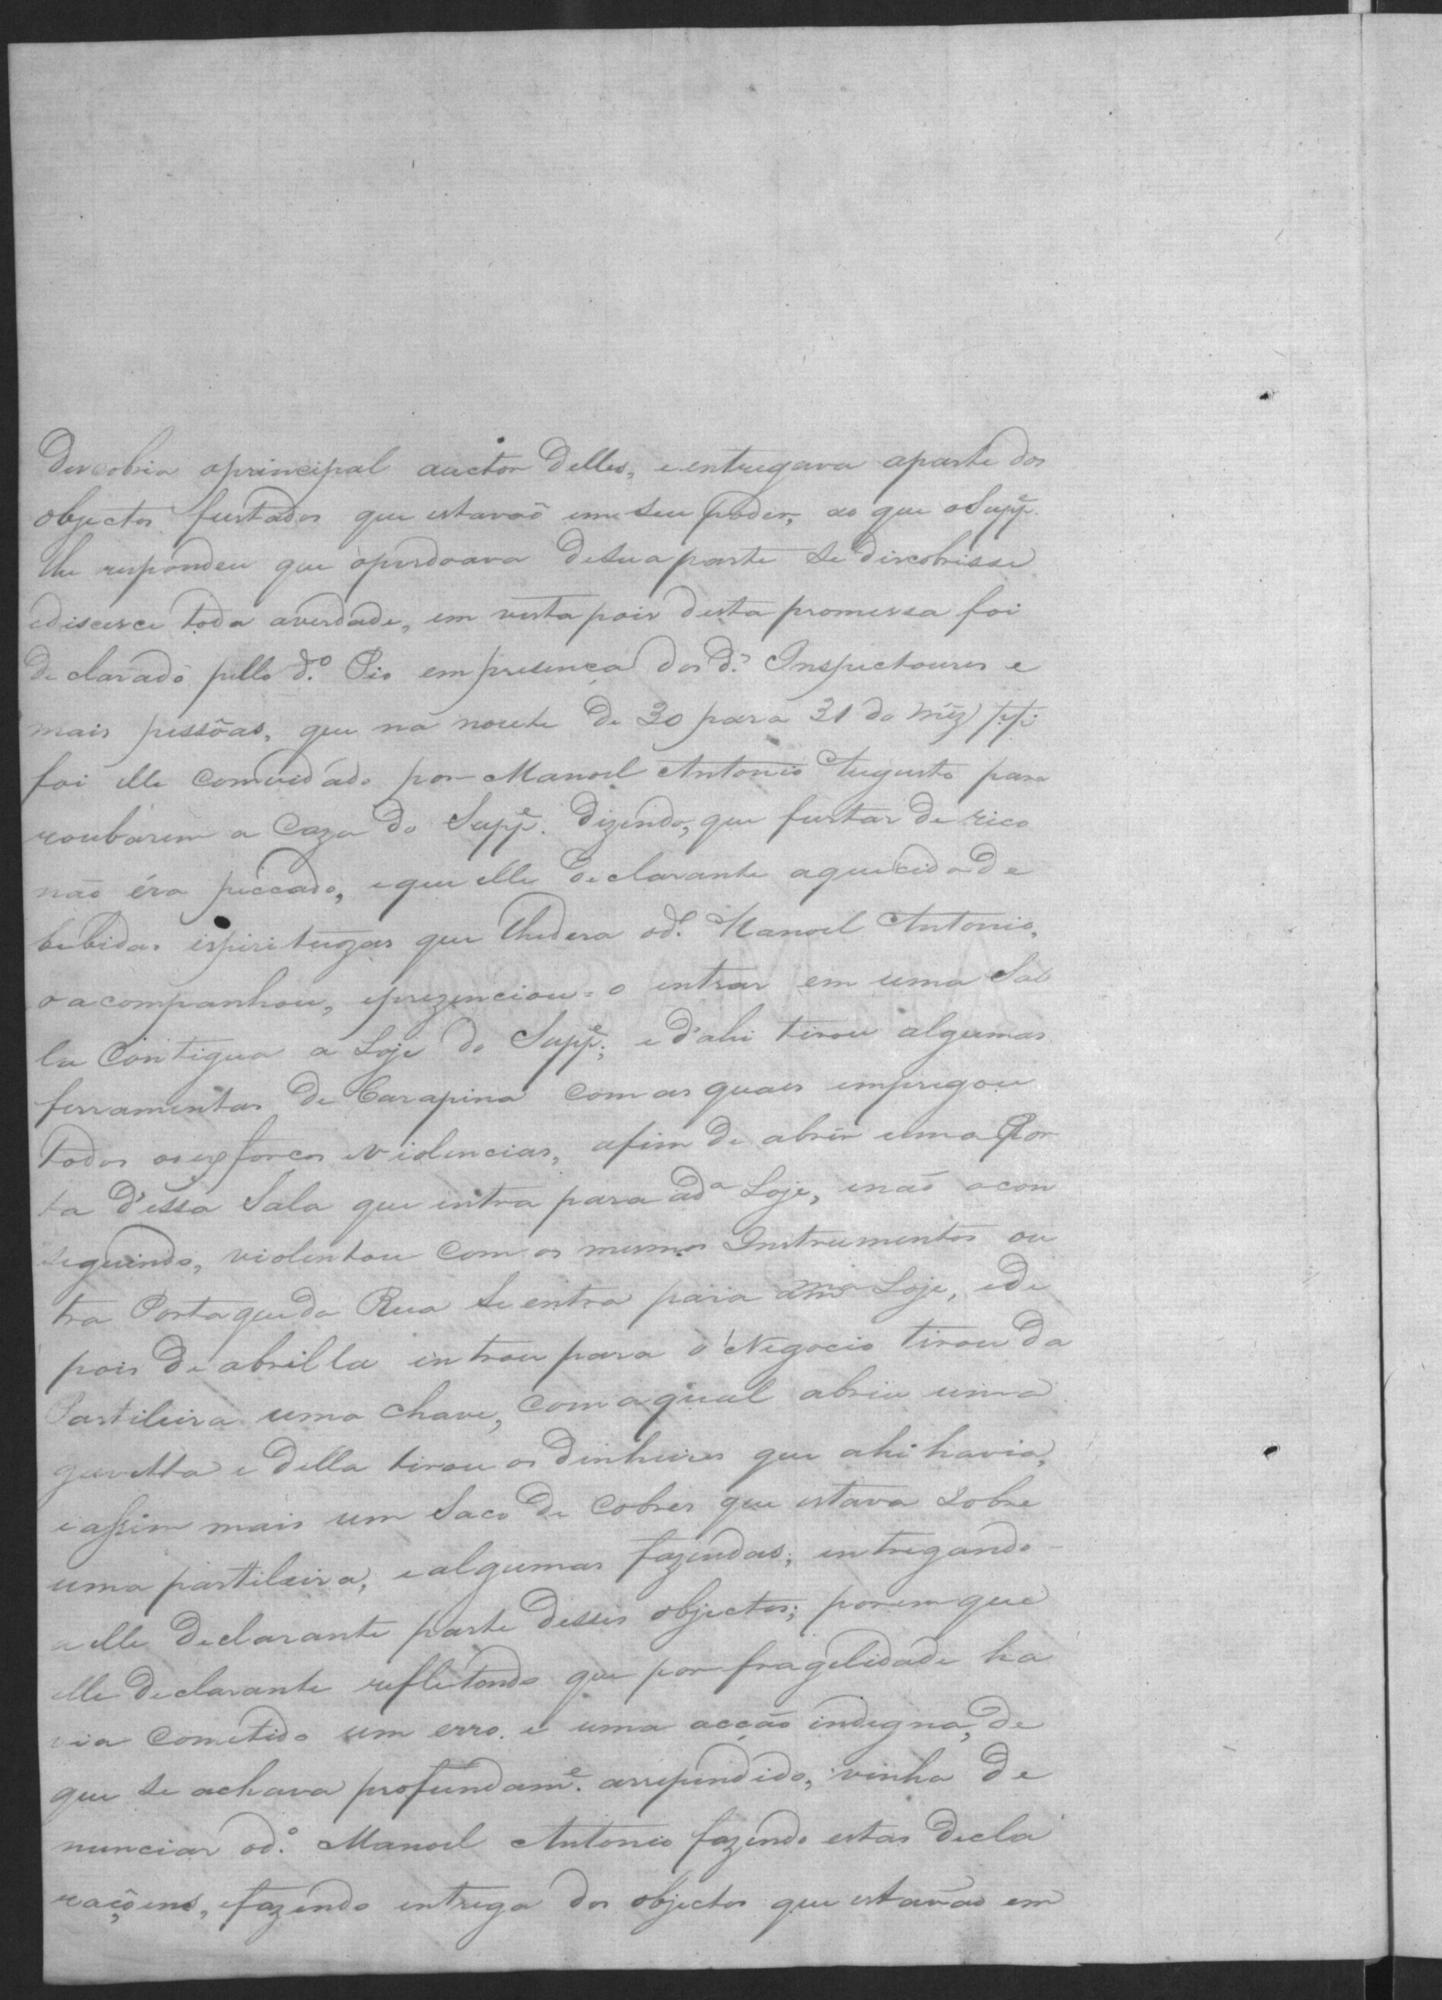 Descobria oprincipal auctor delles, eentregava aparte dos
objectos furtados que estavaõ em seu poder, ao que oSuppe.
lhe respondeu que operdoava desua parte se discobrisse
edisesce toda averdade, em vista pois desta promessa foi
declarado pello do. Pio em presença dos ds. Inspectoures e
mais pessôas, que na noute de 30 para 31 do mêz pp:
foi elle comvidádo por Manoel Antonio Augusto para
roubárem a Caza do Suppe. dizendo, que furtar de rico
não éra peccado, eque elle declarante aquecido de
bebidas ispirituozas que lhedera od. Manoel Antonio,
oacompanhou, eprezenciou-o entrar em uma Sal
la Contigua a Loje do Suppe; e d'ahi tirou algumas
ferramentas de Carapina com as quaes empregou
todos os exforcos eviolencias, afim de abrir uma Por
ta d'essa Sala que entra para ada Loje, enaõ ocon
seguindo, violentou com os mesmos Instrumentos ou
tra Porta queda Rua se entra para a ma Loje, ede
pois de abrilla entrou para o Negocio tirou da
Partileira uma chave, com aqual abriu uma
guvetta e della tirou os dinheiros que ahi havia,
eassim mais um Saco de Cobres que estava sobre
uma partileira, ealgumas fazendas; entregando
a elle declarante parte desses objectos; porem que
elle declarante refletondo que por fragelidade ha
via Cometido um erro. e uma acção indegna, de
que se achava profundame. arrependido, vinha de
nunciar odo. Manoel Antonio fazendo estas decla
raçõens, efazendo entrega dos objectos que estavão em